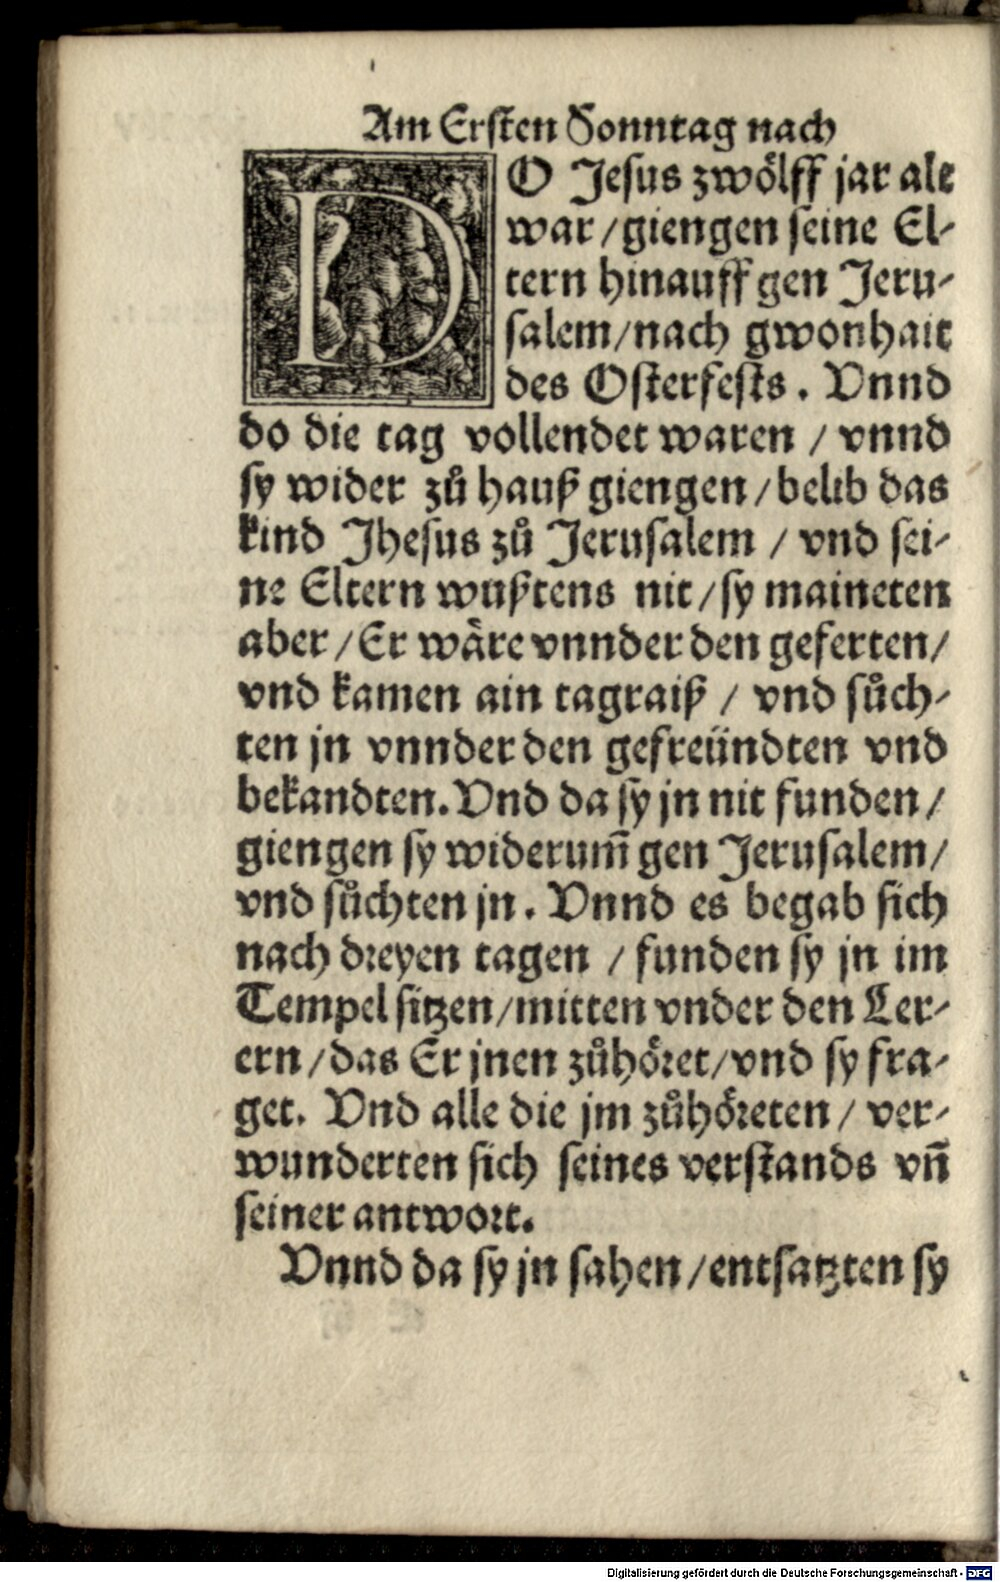 Am Ersten Sonntag nach
DO Jesus zwölff jar alt
war / giengen seine El-
tern hinauff gen Jeru-
salem / nach gwonhait
des Osterfests. Vnnd
do die tag vollendet waren / vnnd
sy wider zů hauß giengen / belib das
kind Jhesus zů Jerusalem / vnd sei-
ne Eltern wußtens nit / sy maineten
aber / Er wäre vnnder den geferten /
vnd kamen ain tagraiß / vnd sůch-
ten jn vnnder den gefreündten vnd
bekandten. Vnd da sy jn nit funden /
giengen sy widerum̃ gen Jerusalem /
vnd sůchten jn. Vnnd es begab sich
nach dreyen tagen / funden sy jn im
Tempel sitzen / mitten vnder den Ler-
ern / das Er jnen zůhöret / vnd sy fra-
get. Vnd alle die jm zůhöreten / ver-
wunderten sich seines verstands vñ
seiner antwort.
Vnnd da sy jn sahen / entsatzten sy
Digitalisierung gefördert durch die Deutsche Forschungsgemeinschaft - DFG